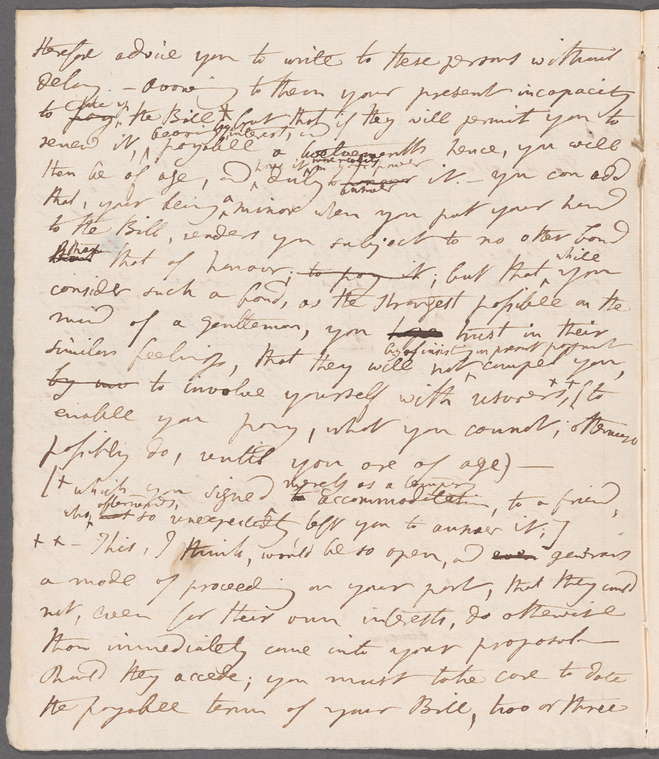 therefore advise you to write to these persons without
delay. – avowing to them your present incapacity
to ~~pay~~ take up the Bill,+ but that if they will permit you to
bearing interest, and
renew it, payable a twelvemonth hence, you will
have it in your power
then be of age, and duly to ~~honour~~ answer it. – You can add
that, your being a minor when you put your hand
to the Bill, renders you subject to no other bond
~~but~~ than that of honour; ~~to pay it~~; but that while you
consider such a bond, as the strongest possible on the
mind of a gentleman, you ~~hope~~ trust in their
by insisting on present payment
similar feelings, that they will not compel you,
~~by our~~ to involve yourself with usurers,++ (to
enable you pay, what you cannot, otherwise
possibly do, until you are of age) –
[+ which you signed merely as a temporary
accommodation, to a friend,
who, afterwards, so unexpectedly left you to answer it;]
++ – This, I think, would be so open, and ~~even~~ generous
a mode of proceeding on your part, that they could
not, even for their own interests, do otherwise
than immediately come into your proposal.
Should they accede; you must take care to date
the payable term of your Bill, two or three